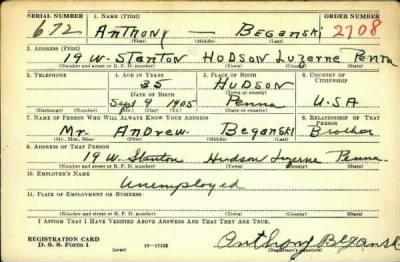 SERIAL NUMBER 1. NAME (Print) ORDER NUMBER
672 Anthony — Beganski 2708
(First) (Middle) (Last)
2. ADDRESS (Print)
19 W. Stanton Hudson Luzerne Penna
(Number and street or R. F. D. number) (Town) (County) (State)
3. TELEPHONE 4. AGE IN YEARS 5. PLACE OF BIRTH 6. COUNTRY OF CITIZENSHIP
35 Hudson
DATE OF BIRTH (Town or county)
Sept 9 1905 Penna U.S.A
(Exchange) (Number) (Mo.) (Day) (Yr.) (State or country)
7. NAME OF PERSON WHO WILL ALWAYS KNOW YOUR ADDRESS 8. RELATIONSHIP OF THAT PERSON
Mr. Andrew Beganski Brother
(Mr., Mrs., Miss) (First) (Middle) (Last)
9. ADDRESS OF THAT PERSON
19 W. Stanton Hudson Luzerne Penna
(Number and street or R. F. D. number) (Town) (County) (State)
10. EMPLOYER'S NAME
Unemployed
11. PLACE OF EMPLOYMENT OR BUSINESS
(Number and street or R. F. D. number) (Town) (County) (State)
I AFFIRM THAT I HAVE VERIFIED ABOVE ANSWERS AND THAT THEY ARE TRUE.
REGISTRATION CARD
D. S. S. Form 1 (over) Anthony Beganski
(Registrant's signature)